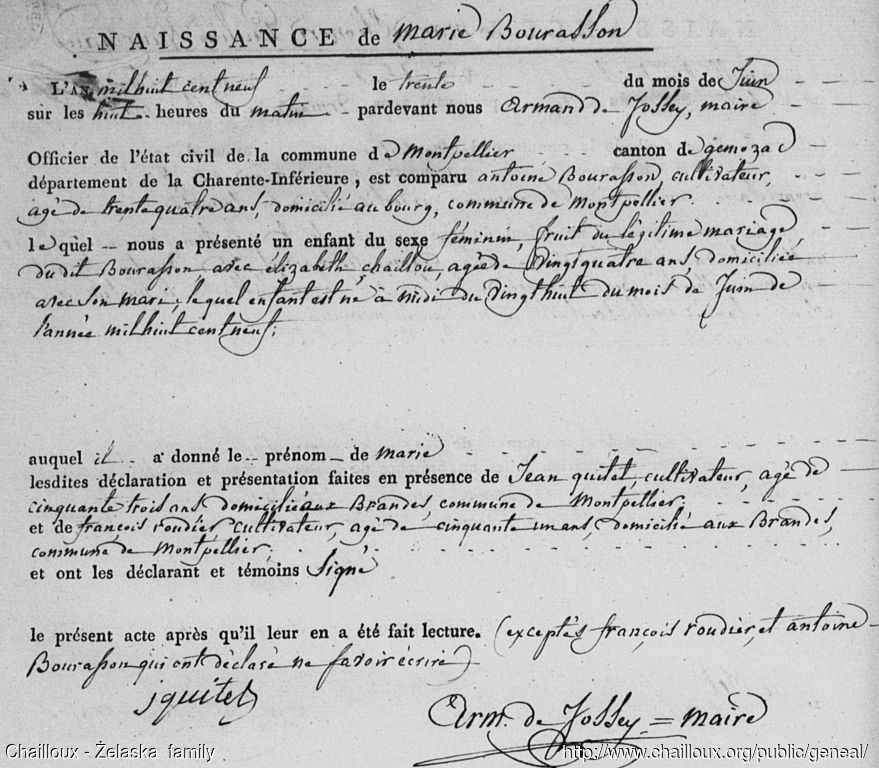 NAISSANCE de marie Bourasson
L'AN milhuit cent neuf le trente du mois de Juin
sur les huit heures du matin pardevant nous Armand de Jossey, maire
Officier de l'état civil de la commune de Montpellier canton de gemozac
département de la Charente-Inférieure, est comparu antoine Bourasson, cultivateur,
agé de trente quatre ans, domicilié au bourg, commune de Montpellier.
lequel nous a présenté un enfant du sexe féminin, fruit du légitime mariage
du dit Bourasson avec élizabeth chaillou, agée de vingt quatre ans, domiciliée
avec son mari, lequel enfant est né à midi du vingt huit du mois de Juin de
l'année milhuit cent neuf;
auquel il a donné le prénom de marie
lesdites déclaration et présentation faites en présence de Jean quitet, cultivateur, agé de
cinquante trois ans domicilié aux Brandes, commune de Montpellier.
et de françois roudier cultivateur, agé de cinquante un ans, domicilié aux Brandes,
commune de Montpellier,
et ont les déclarant et témoins Signé
le présent acte après qu'il leur en a été fait lecture. (exceptés françois roudier, et antoine
Bourasson qui ont déclaré ne savoir écrire)
jquitet
Arm. de Jossey = maire
Chailloux - Żelaska family
http://www.chailloux.org/public/geneal/